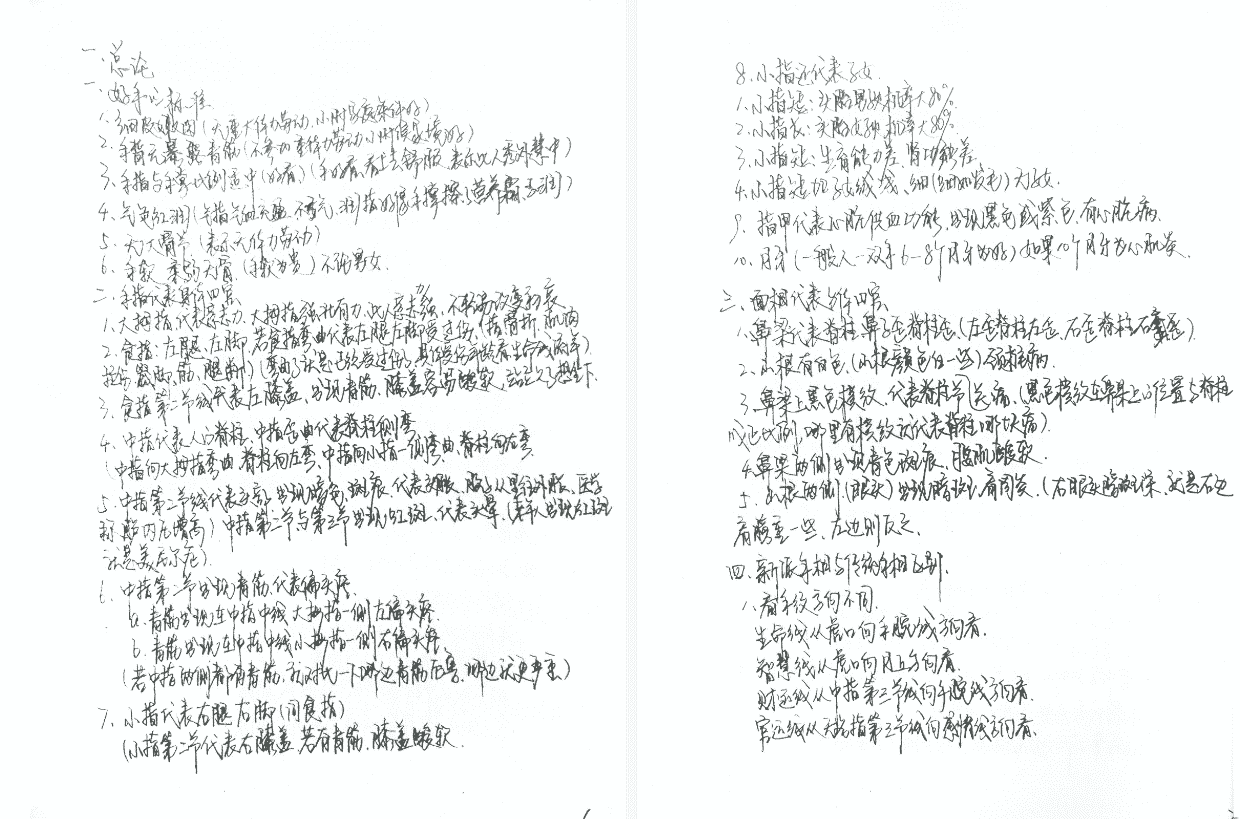 一、总论
一、好手的标准
1、细皮嫩肉(无重大体力劳动,小时家庭条件好)
2、手背无暴起青筋(不参加重体力劳动,小时家境好)
3、手指与手掌比例适中(好看)(手好看,看上去舒服,表示此人秀外慧中)
4、气色红润(气指气血充盈,不透气,润指好像手擦了营养霜,玉润)
5、无大骨节(表示无体力劳动)
6、手软、柔弱无骨(手软为贵)不论男女.
二、手指代表身体四官、
1、大拇指:代表意志力,大拇指强壮有力,此人意志力强,不轻易改变初衷
2、食指:左腿、左脚,若食指弯曲代表左腿左脚受过伤(指骨折,肌肉
脚、筋、腿断)(弯曲了就是已经受过伤了,具体受伤年龄看生命线
3、食指第二节线代表左膝盖,出现青筋,膝盖容易酸软,站久了想坐下.
4、中指代表人的脊柱,中指歪曲代表脊柱侧弯
(中指向大拇指弯曲,脊柱向左弯,中指向小指一侧弯曲,脊柱向右弯
5、中指第二节线代表头部,出现暗色,斑痕,代表头胀,医学
称脑内压增高)中指第二节与第三节出现红斑,代表头晕(老年人出现红斑
就是美尼尔症)
6、中指第二节出现青筋,代表偏头疼.
a、青筋出现在中指中线大拇指一侧左偏头疼.
b、青筋出现在中指中线小拇指一侧右偏头疼.
(若中指两侧都有青筋,就对比一下哪边青筋厉害,哪边就更严重)
7、小指代表右腿右脚(同食指)
(小指第二节代表右膝盖,若有青筋,膝盖酸软.
8、小指还代表子女.
1、小指短:头胎男孩机率大80%
2、小指长:头胎女孩机率大80%
3、小指短:生育能力差,肾功能差
4、小指短加子女线浅、细(细如发毛)为女.
9、指甲代表心脏供血功能,出现黑色或紫色,有心脏病.
10、月牙(一般人一双手6-8个月牙为好)如果10个月牙为心肌炎
三、面相代表身体四官.
1、鼻梁代表脊柱,鼻子歪脊柱歪(左歪脊柱左歪,右歪脊柱右歪)
2、山根有白色(山根颜色白一些)颈椎病.
3、鼻梁上黑色横纹,代表脊柱节段病,(黑色横纹在鼻梁上的位置与脊柱
成正比例,哪里有横纹就代表脊柱哪块病)
4、鼻梁两侧出现青色斑痕,腰肌酸软.
5、山根两侧(眼头)出现暗斑,肩周炎.(右眼头暗斑深,就是右边
肩膀重一些,左边则反之.
四、新派手相与传统手相区别.
1、看手纹方向不同.
生命线从虎口向手腕线方向看.
智慧线从虎口向月丘方向看.
财运线从中指第三节线向手腕线方向看.
官运线从无名指第三节线向感情线方向看.